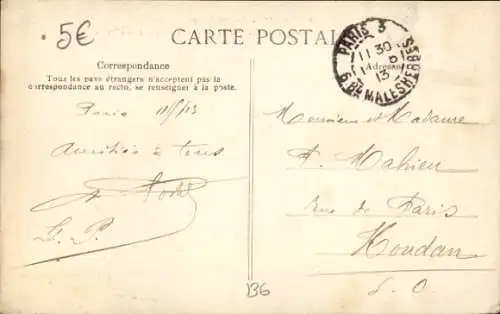 5€
CARTE POSTALE
Correspondance
Tous les pays étrangers n'acceptent pas la
correspondance au recto, se renseigner à la poste.
Paris
Amitiés à tous
Adresse
PARIS 3
11 30
13
6 Bd MALESHERBES
Monsieur et Madame
Mahieu
rue de Paris
Houdan
S. O
136